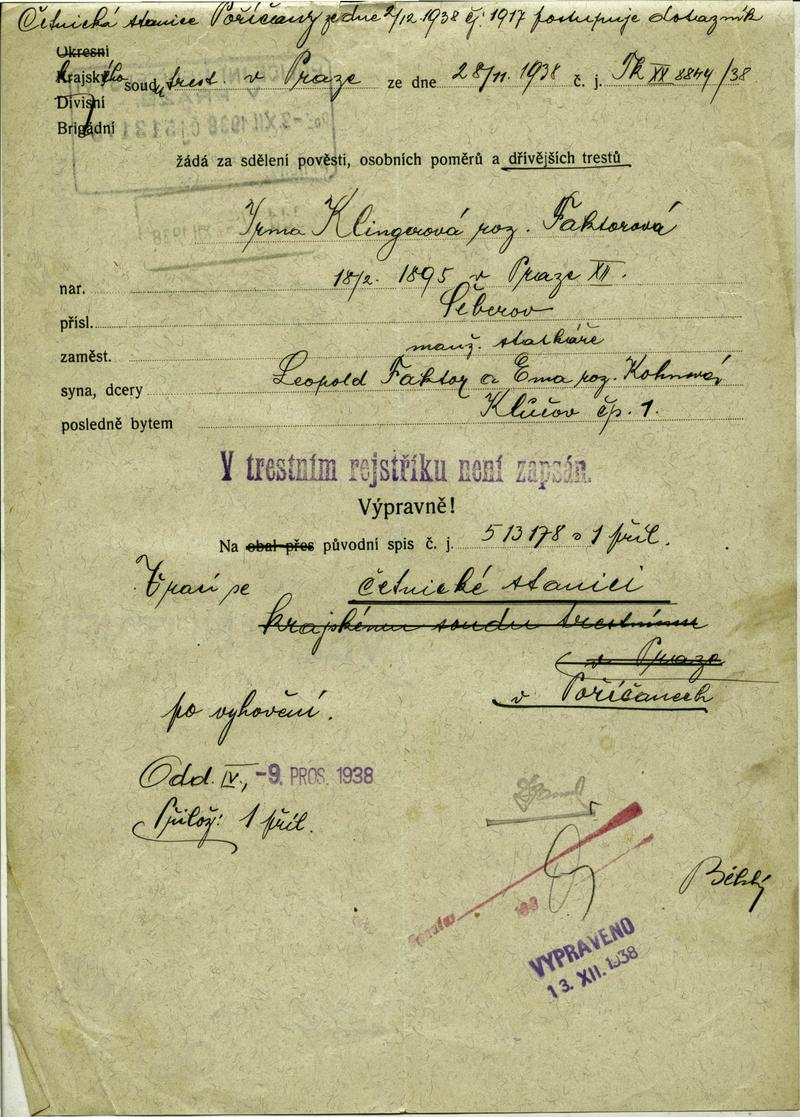 Četnická stanice Poříčany ze dne 2/12 1938 čj. 1917 postupuje dotazník
Okresní
Krajského soudu trest. v Praze ze dne 28/11. 1938 č. j. Tk XX 8844/38
Divisní
Brigádní
žádá za sdělení pověsti, osobních poměrů a dřívějších trestů
Irma Klingerová roz. Faktorová
nar. 18/2. 1895 v Praze XII.
přísl. Šeberov
zaměst. manž. statkáře
syna, dcery Leopold Faktor a Ema roz. Kohnová
posledně bytem Klučov čp. 1.
V trestním rejstříku není zapsán.
Výpravně!
Na obal přes původní spis č. j. 513178 s 1 příl.
Vrací se četnické stanici
krajskému soudu trestnímu
v Praze
v Poříčanech
po vyhovění.
Odd. IV, -9. PROS. 1938
Přilož: 1 příl.
Bělský
VYPRAVENO
13. XII. 1938